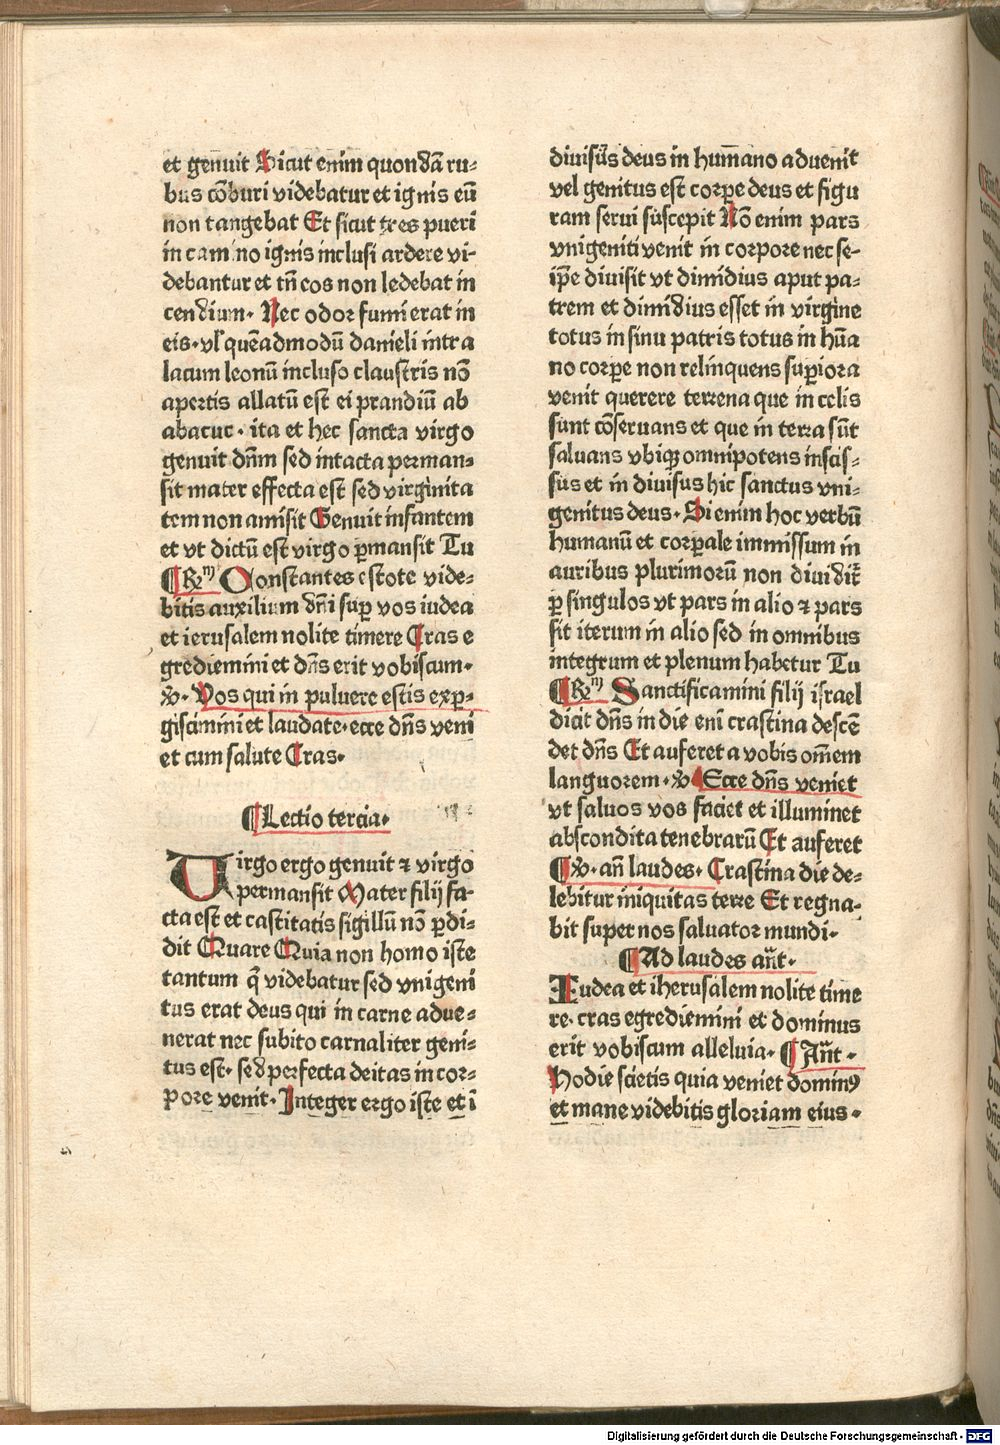 et genuit Sicut enim quondā ru⸗
bus cōburi videbatur et ignis eū
non tangebat Et sicut tres pueri
in camino ignis inclusi ardere vi⸗
debantur et tn̄ eos non ledebat in
cendium· Nec odor fumi erat in
eis·vl' quēadmodū danieli intra
lacum leonū incluso claustris nō
apertis allatū est ei prandiū ab
abacuc· ita et hec sancta virgo
genuit dn̄m sed intacta perman⸗
sit mater effecta est sed virginita
tem non amisit Genuit infantem
et vt dictū est virgo ꝑmansit Tu
¶ Rm̄ Constantes estote vide⸗
bitis auxilium dn̄i suꝑ vos iudea
et ierusalem nolite timere Cras e
grediemini et dn̄s erit vobiscum·
℣· Vos qui in puluere estis exꝑ⸗
giscimini et laudate·ecce dn̄s veni
et cum salute Cras·
¶Lectio tercia·
Virgo ergo genuit ⁊ virgo
permansit Mater filij fa⸗
cta est et castitatis sigillū nō ꝑdi⸗
dit Quare Quia non homo iste
tantum q̄ videbatur sed vnigeni
tus erat deus qui in carne adue⸗
nerat nec subito carnaliter geni⸗
tus est· sed perfecta deitas in cor⸗
pore venit· Integer ergo iste et ī
diuisus deus in humano aduenit
vel genitus est corꝑe deus et figu
ram serui suscepit Nō enim pars
vnigeniti venit in corpore nec se⸗
ip̄e diuisit vt dimidius aput pa⸗
trem et dimidius esset in virgine
totus in sinu patris totus in hūa
no corꝑe non relinquens suꝑiora
venit querere terrena que in celis
sunt cōseruans et que in terra sūt
saluans vbiqꝫ omnipotens inscis⸗
sus et in diuisus hic sanctus vni⸗
genitus deus· Si enim hoc verbū
humanū et corꝑale immissum in
auribus plurimorū non diuidit̄
ꝑ singulos vt pars in alio ⁊ pars
sit iterum in alio sed in omnibus
integrum et plenum habetur Tu
¶ Rm̄ Sanctificamini filij israel
dicit dn̄s in die eni crastina descē
det dn̄s Et auferet a vobis om̄em
languorem·℣ Ecce dn̄s veniet
vt saluos vos faciet et illuminet
abscondita tenebrarū Et auferet
¶℣· an̄ laudes· Crastina die de⸗
lebitur iniquitas terre Et regna⸗
bit super nos saluator mundi·
¶Ad laudes an̄t·
Iudea et iherusalem nolite time
re· cras egrediemini et dominus
erit vobiscum alleluia· ¶ An̄t·
Hodie scietis quia veniet dominꝰ
et mane videbitis gloriam eius·
Digitalisierung gefördert durch die Deutsche Forschungsgemeinschaft - DFG